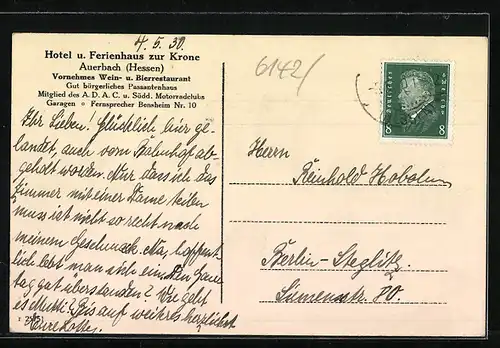 4. 5. 30.
Hotel u. Ferienhaus zur Krone
Auerbach (Hessen)
Vornehmes Wein- u. Bierrestaurant
Gut bürgerliches Passantenhaus
Mitglied des A. D. A. C. u. Südd. Motorradclubs
Garagen * Fernsprecher Bensheim Nr. 10
Ihr Lieben! Glücklich hier ge-
landet, auch vom Bahnhof ab-
geholt worden. Nur dass ich das
Zimmer mit einer Dame teilen
muss ist nicht so recht nach
meinem Geschmack. Na, hoffent-
lich lebt man sich ein.
tag gut überstanden? Wie geht
es Mutti? Bis auf weiteres herzlichst
Eure
6142/
Deutsches Reich
8 8
Herrn
Reinhold
Berlin-Steglitz.